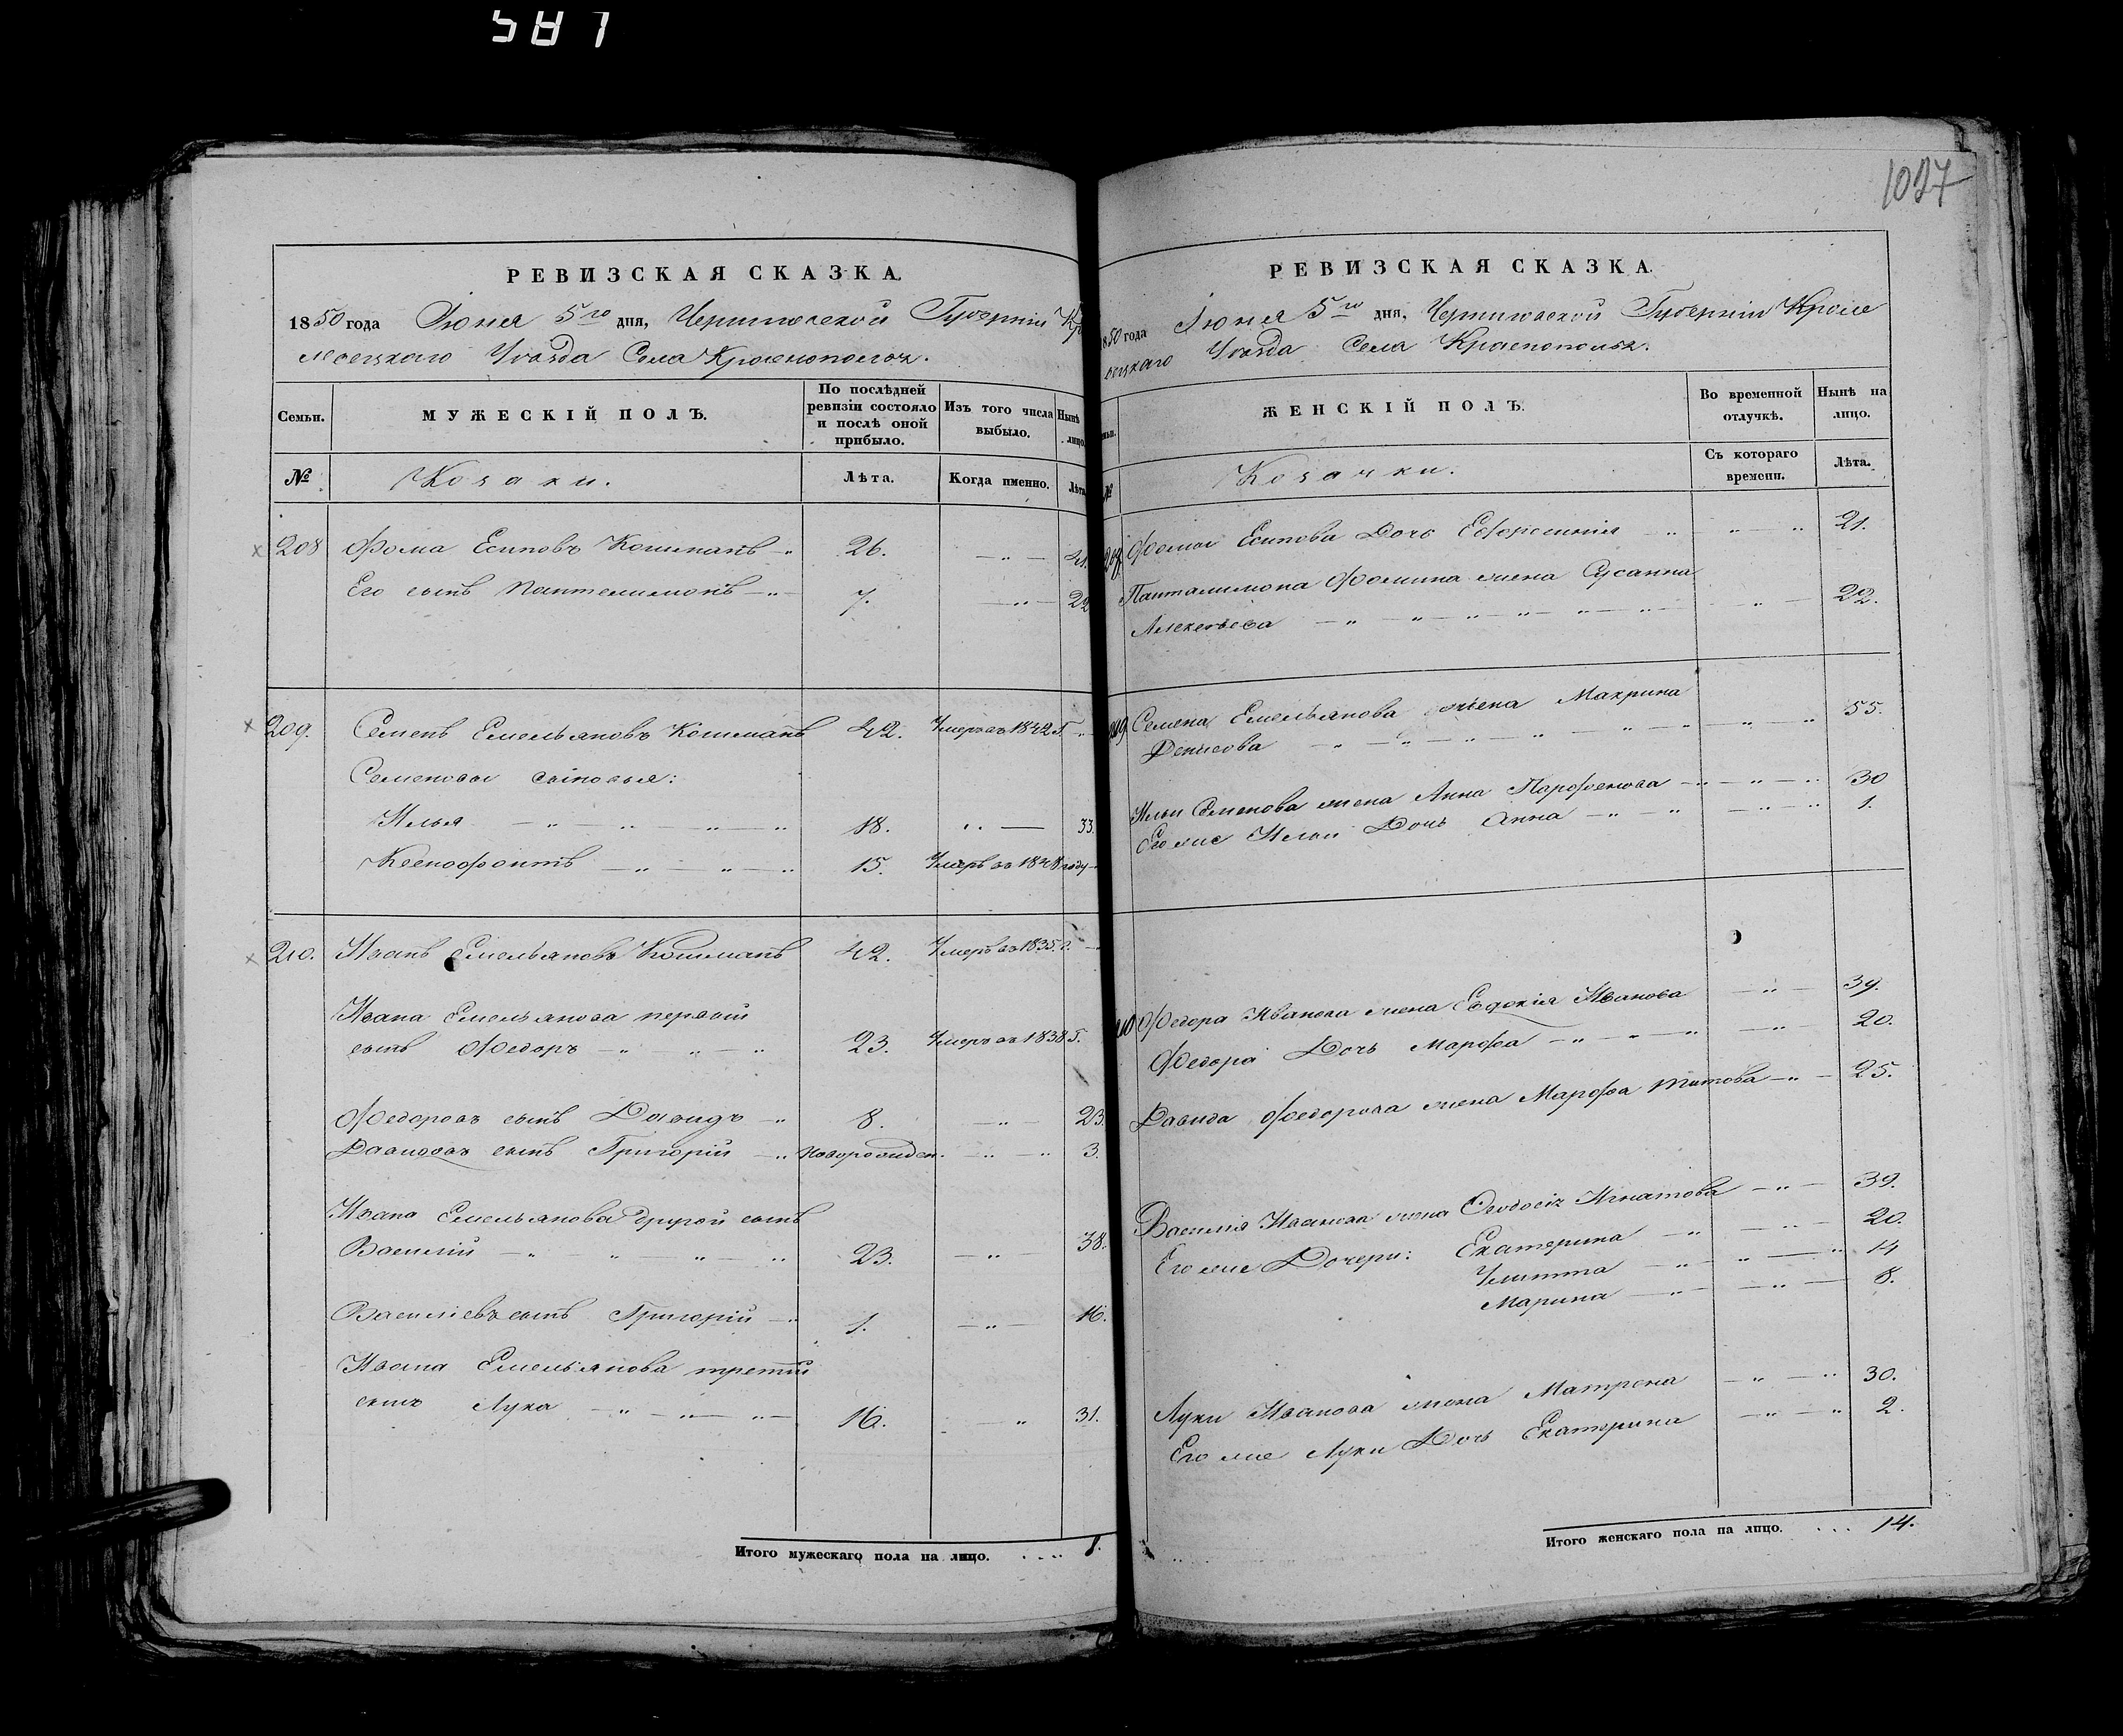 587
1027
РЕВИЗСКАЯ СКАЗКА.
1850 года Іюня 5го дня, Черниговской Губерніи Кро
левецкаго Уѣзда Села Краснополья.
Семьи.
МУЖЕСКІЙ ПОЛЪ.
По послѣдней ревизіи состояло и послѣ оной прибыло.
Изъ того числа выбыло.
Нынѣ лицо.
№
Козаки.
Лѣта.
Когда именно.
Лѣта
208 Фома Есиповъ Кошманъ 26. 41.
Его сынъ Пантелимонъ 7. 22
209. Семенъ Емельяновъ Кошманъ 42. Умеръ въ 1842 г.
Семеновы сыновья:
Илья 18. 33.
Ксенофонтъ 15. Умеръ въ 1848 году
210. Иванъ Емельяновъ Кошманъ 42. Умеръ въ 1835. г.
Ивана Емельянова первый
сынъ Федоръ 23. Умеръ въ 1838 г.
Федоровъ сынъ Давидъ 8. 23.
Давидовъ сынъ Григорій новорожден. 3.
Ивана Емельянова другой сынъ
Василій 23. 38.
Василіевъ сынъ Григорій 1. 16.
Ивана Емельянова третій
сынъ Лука 16. 31.
Итого мужескаго пола на лицо. . . . . 8.
РЕВИЗСКАЯ СКАЗКА.
1850 года Іюня 5го дня, Черниговской Губерніи Кроле
вецкаго Уѣзда Села Краснополья.
ЖЕНСКІЙ ПОЛЪ.
Во временной отлучкѣ.
Нынѣ на лицо.
№
Козачки.
Съ котораго времени.
Лѣта.
208 Фомы Есипова Дочь Ефросинія 21.
Панталимона Фомина жена Сусанна
Алексѣева 22.
209 Семена Емельянова жена Макрина
Денисова 55.
Ильи Семенова жена Анна Парфенова 30
Его же Ильи Дочь Анна 1.
210 Федора Иванова жена Евдокія Иванова 39.
Федора Дочь Марфа 20.
Давида Федорова жена Марфа Титова 25.
Василія Иванова жена Феодосія Игнатова 39.
Его же Дочери: Екатерина 20.
Улитта 14
Марина 8.
Луки Иванова жена Матрона 30.
Его же Луки Дочь Екатерина 2.
Итого женскаго пола на лицо. . . . 14.